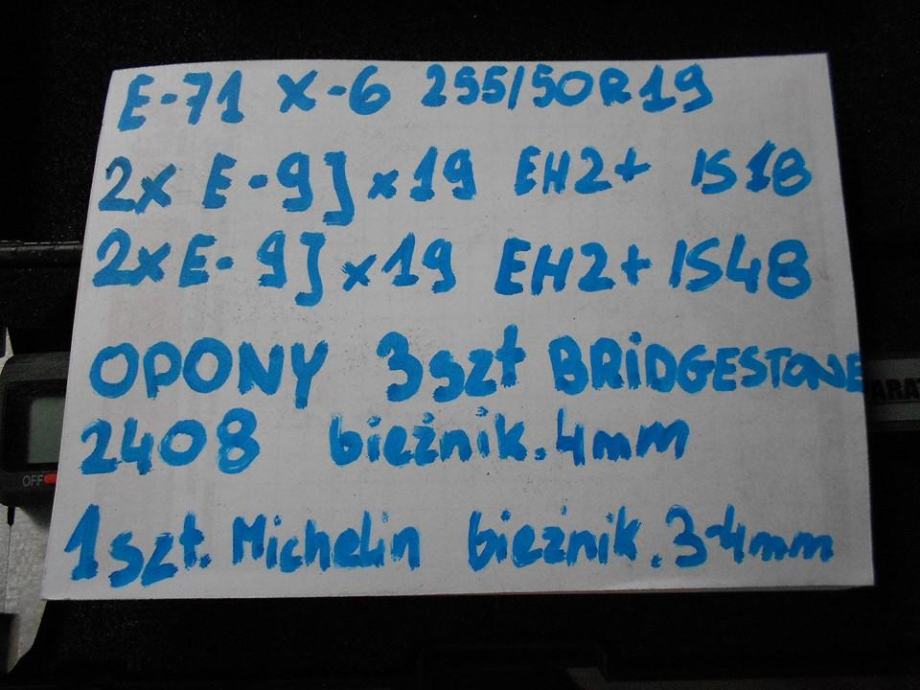 E-71 X-6 255/50R19
2x E-9J x19 EH2+ IS18
2x E-9J x19 EH2+ IS48
OPONY 3szt BRIDGESTONE
2408 bieżnik.4mm
1szt. Michelin bieżnik.3-4mm
OFF